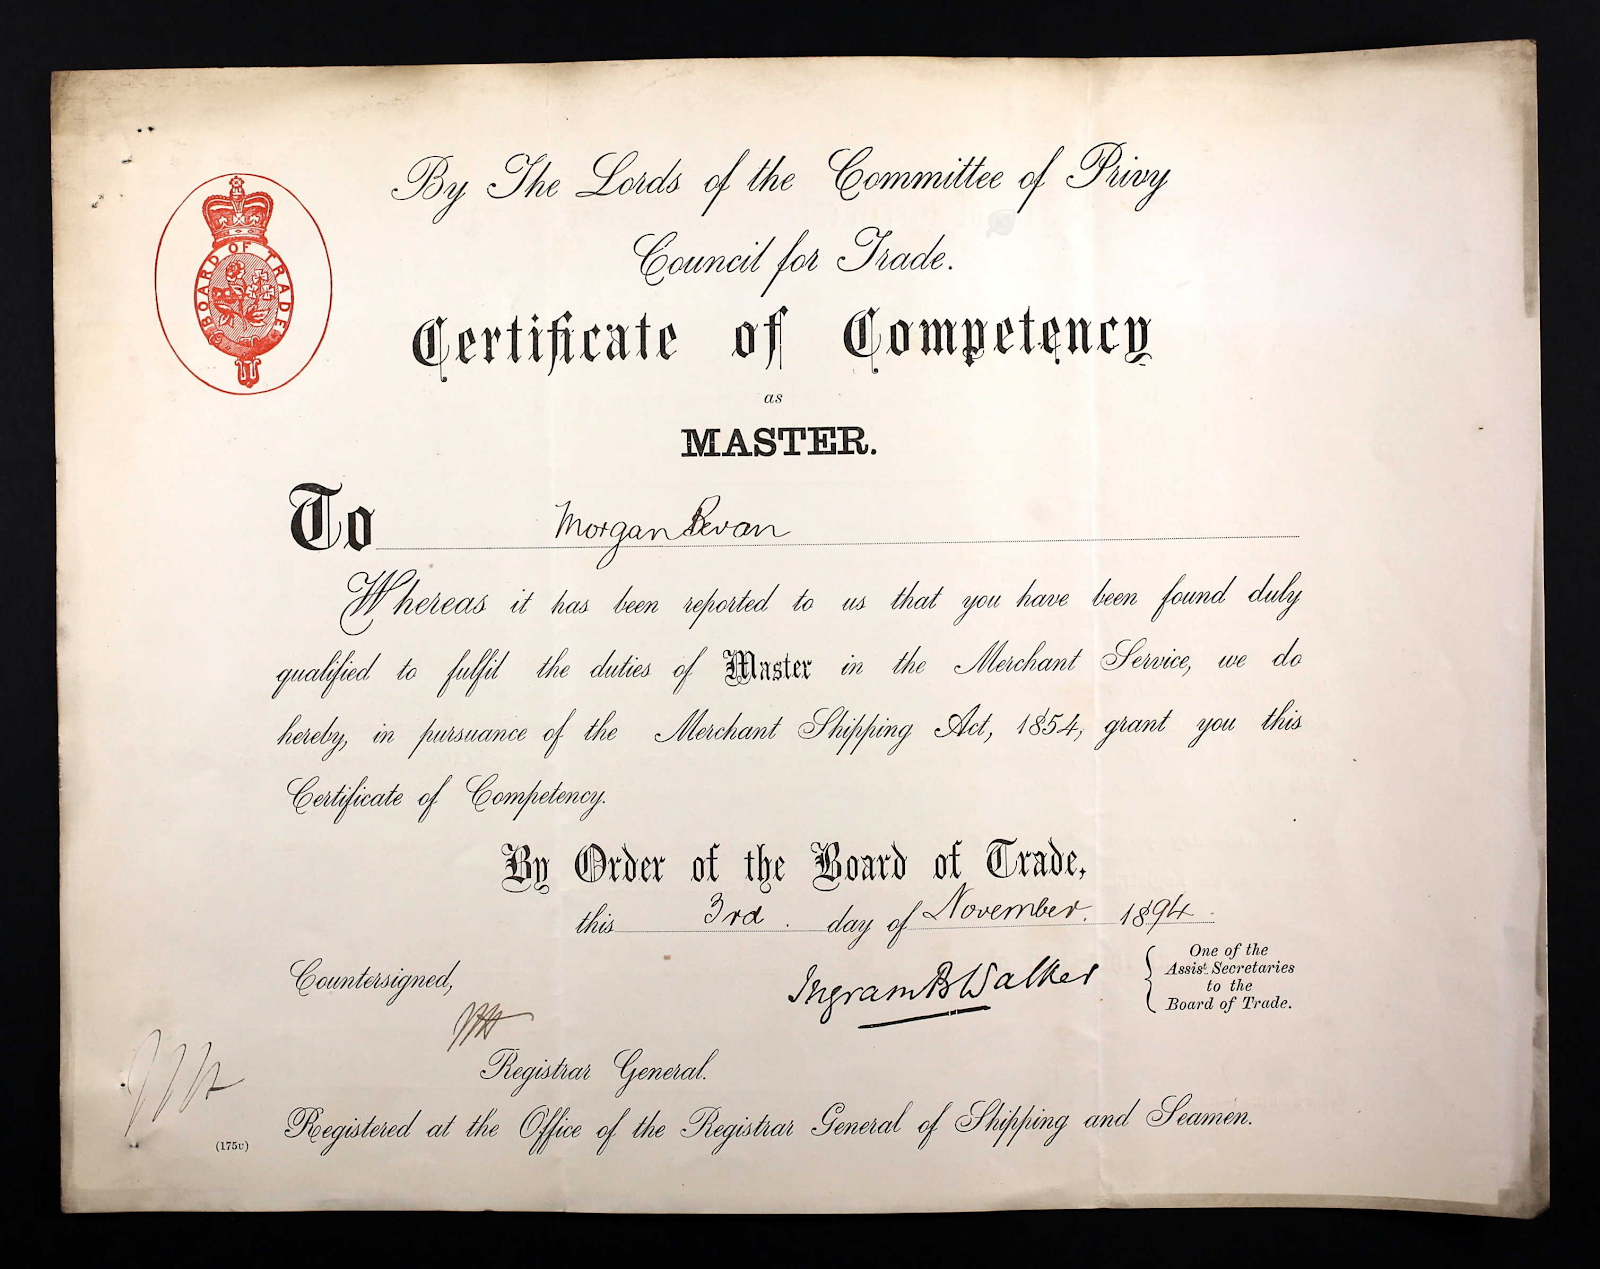 BOARD OF TRADE
By The Lords of the Committee of Privy
Council for Trade.
Certificate of Competency
as
MASTER.
To Morgan Bevan
Whereas it has been reported to us that you have been found duly
qualified to fulfil the duties of Master in the Merchant Service, we do
hereby, in pursuance of the Merchant Shipping Act, 1854, grant you this
Certificate of Competency.
By Order of the Board of Trade,
this 3rd. day of November. 1894.
Countersigned,
Ingram B Walker
One of the
Assist. Secretaries
to the
Board of Trade.
Registrar General.
Registered at the Office of the Registrar General of Shipping and Seamen.
(175v)